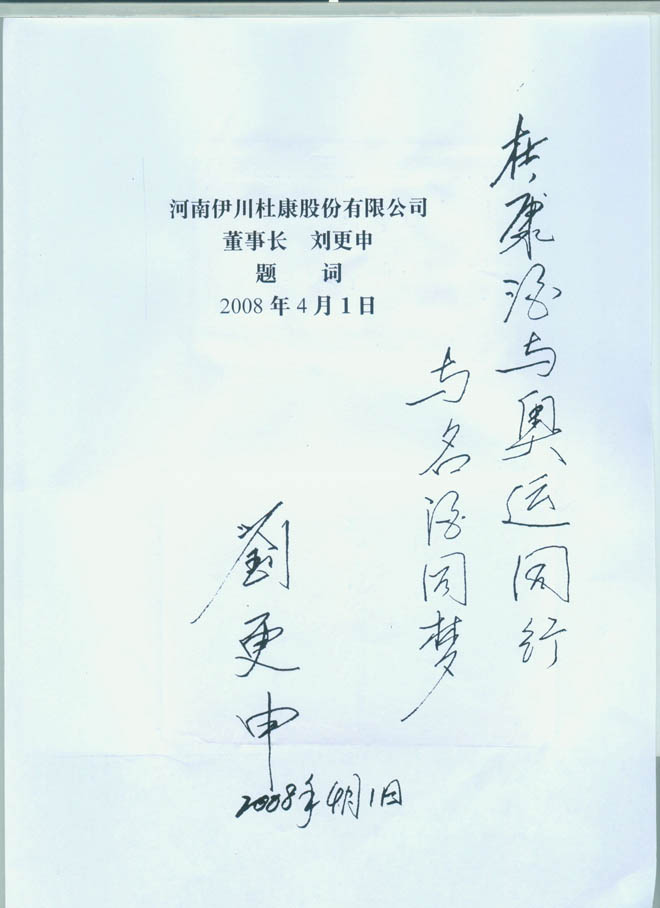 河南伊川杜康股份有限公司
董事长 刘更申
题 词
2008 年 4 月 1 日
杜康酒与奥运同行
与名酒同梦
劉更申
2008年4月1日